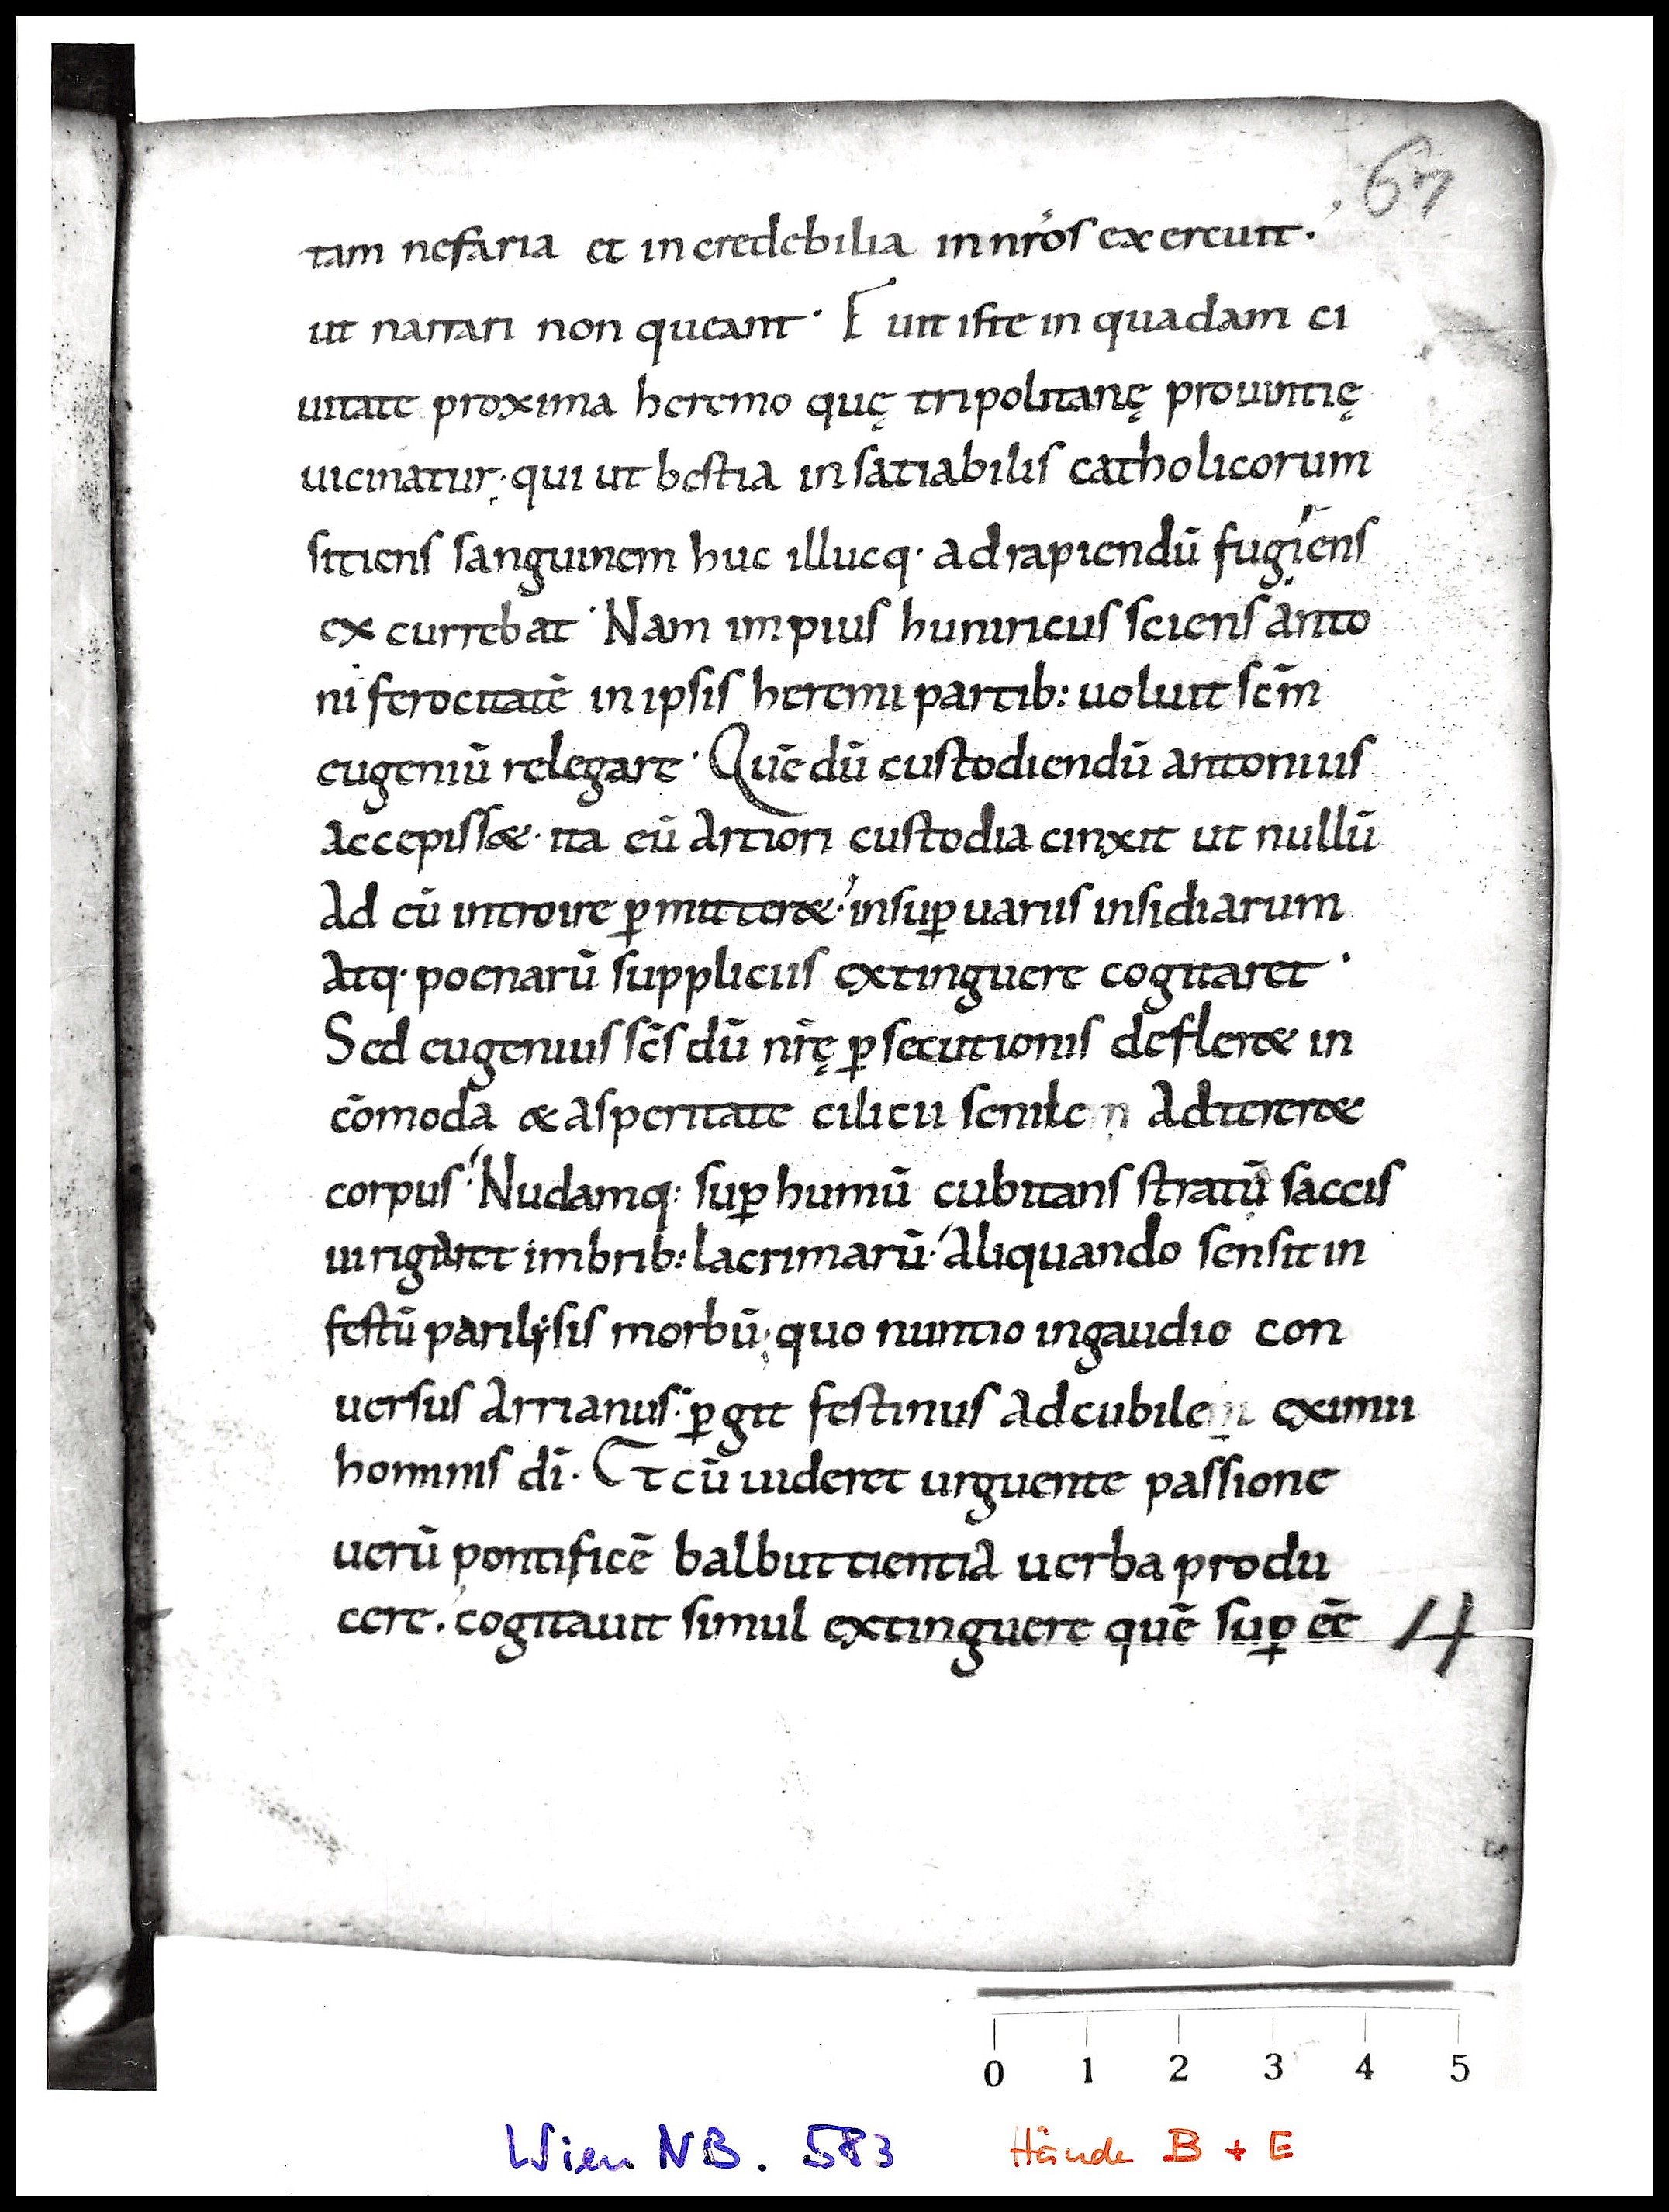 67
tam nefaria et incredebilia in nr̄os exercuit·
ut narrari non queant· Fuit iste in quadam ci
uitate proxima heremo quę tripolitanę prouintię
uicinatur; qui ut bestia insatiabilis catholicorum
sitiens sanguinem huc illucq· ad rapiendū fugiens
excurrebat· Nam impius huniricus sciens anto
ni ferocitatē in ipsis heremi partib: uoluit sc̄m
eugeniū relegare· Quē dū custodiendū antonius
accepiss&· ita eū artiori custodia cinxit ut nullū
ad eū introire ꝑmitter&· insuꝑ uariis insidiarum
atq· poenarū suppliciis extinguere cogitaret·
Sed eugenius sc̄s dū nr̄ę ꝑsecutionis defler& in
cōmoda & asperitate cilicii senilem adterer&
corpus· Nudamq: suꝑ humū cubitans stratū saccis
irrigaret imbrib: lacrimarū· aliquando sensit in
festū parilysis morbū; quo nuntio in gaudio con
uersus arrianus· ꝑgit festinus ad cubilem eximii
hominis dī· Et cū uideret urguente passione
uerū pontificē balbuttientia uerba produ
cere. cogitauit simul extinguere quē suꝑ eē
14
0 1 2 3 4 5
Wien NB. 583 Hände B + E